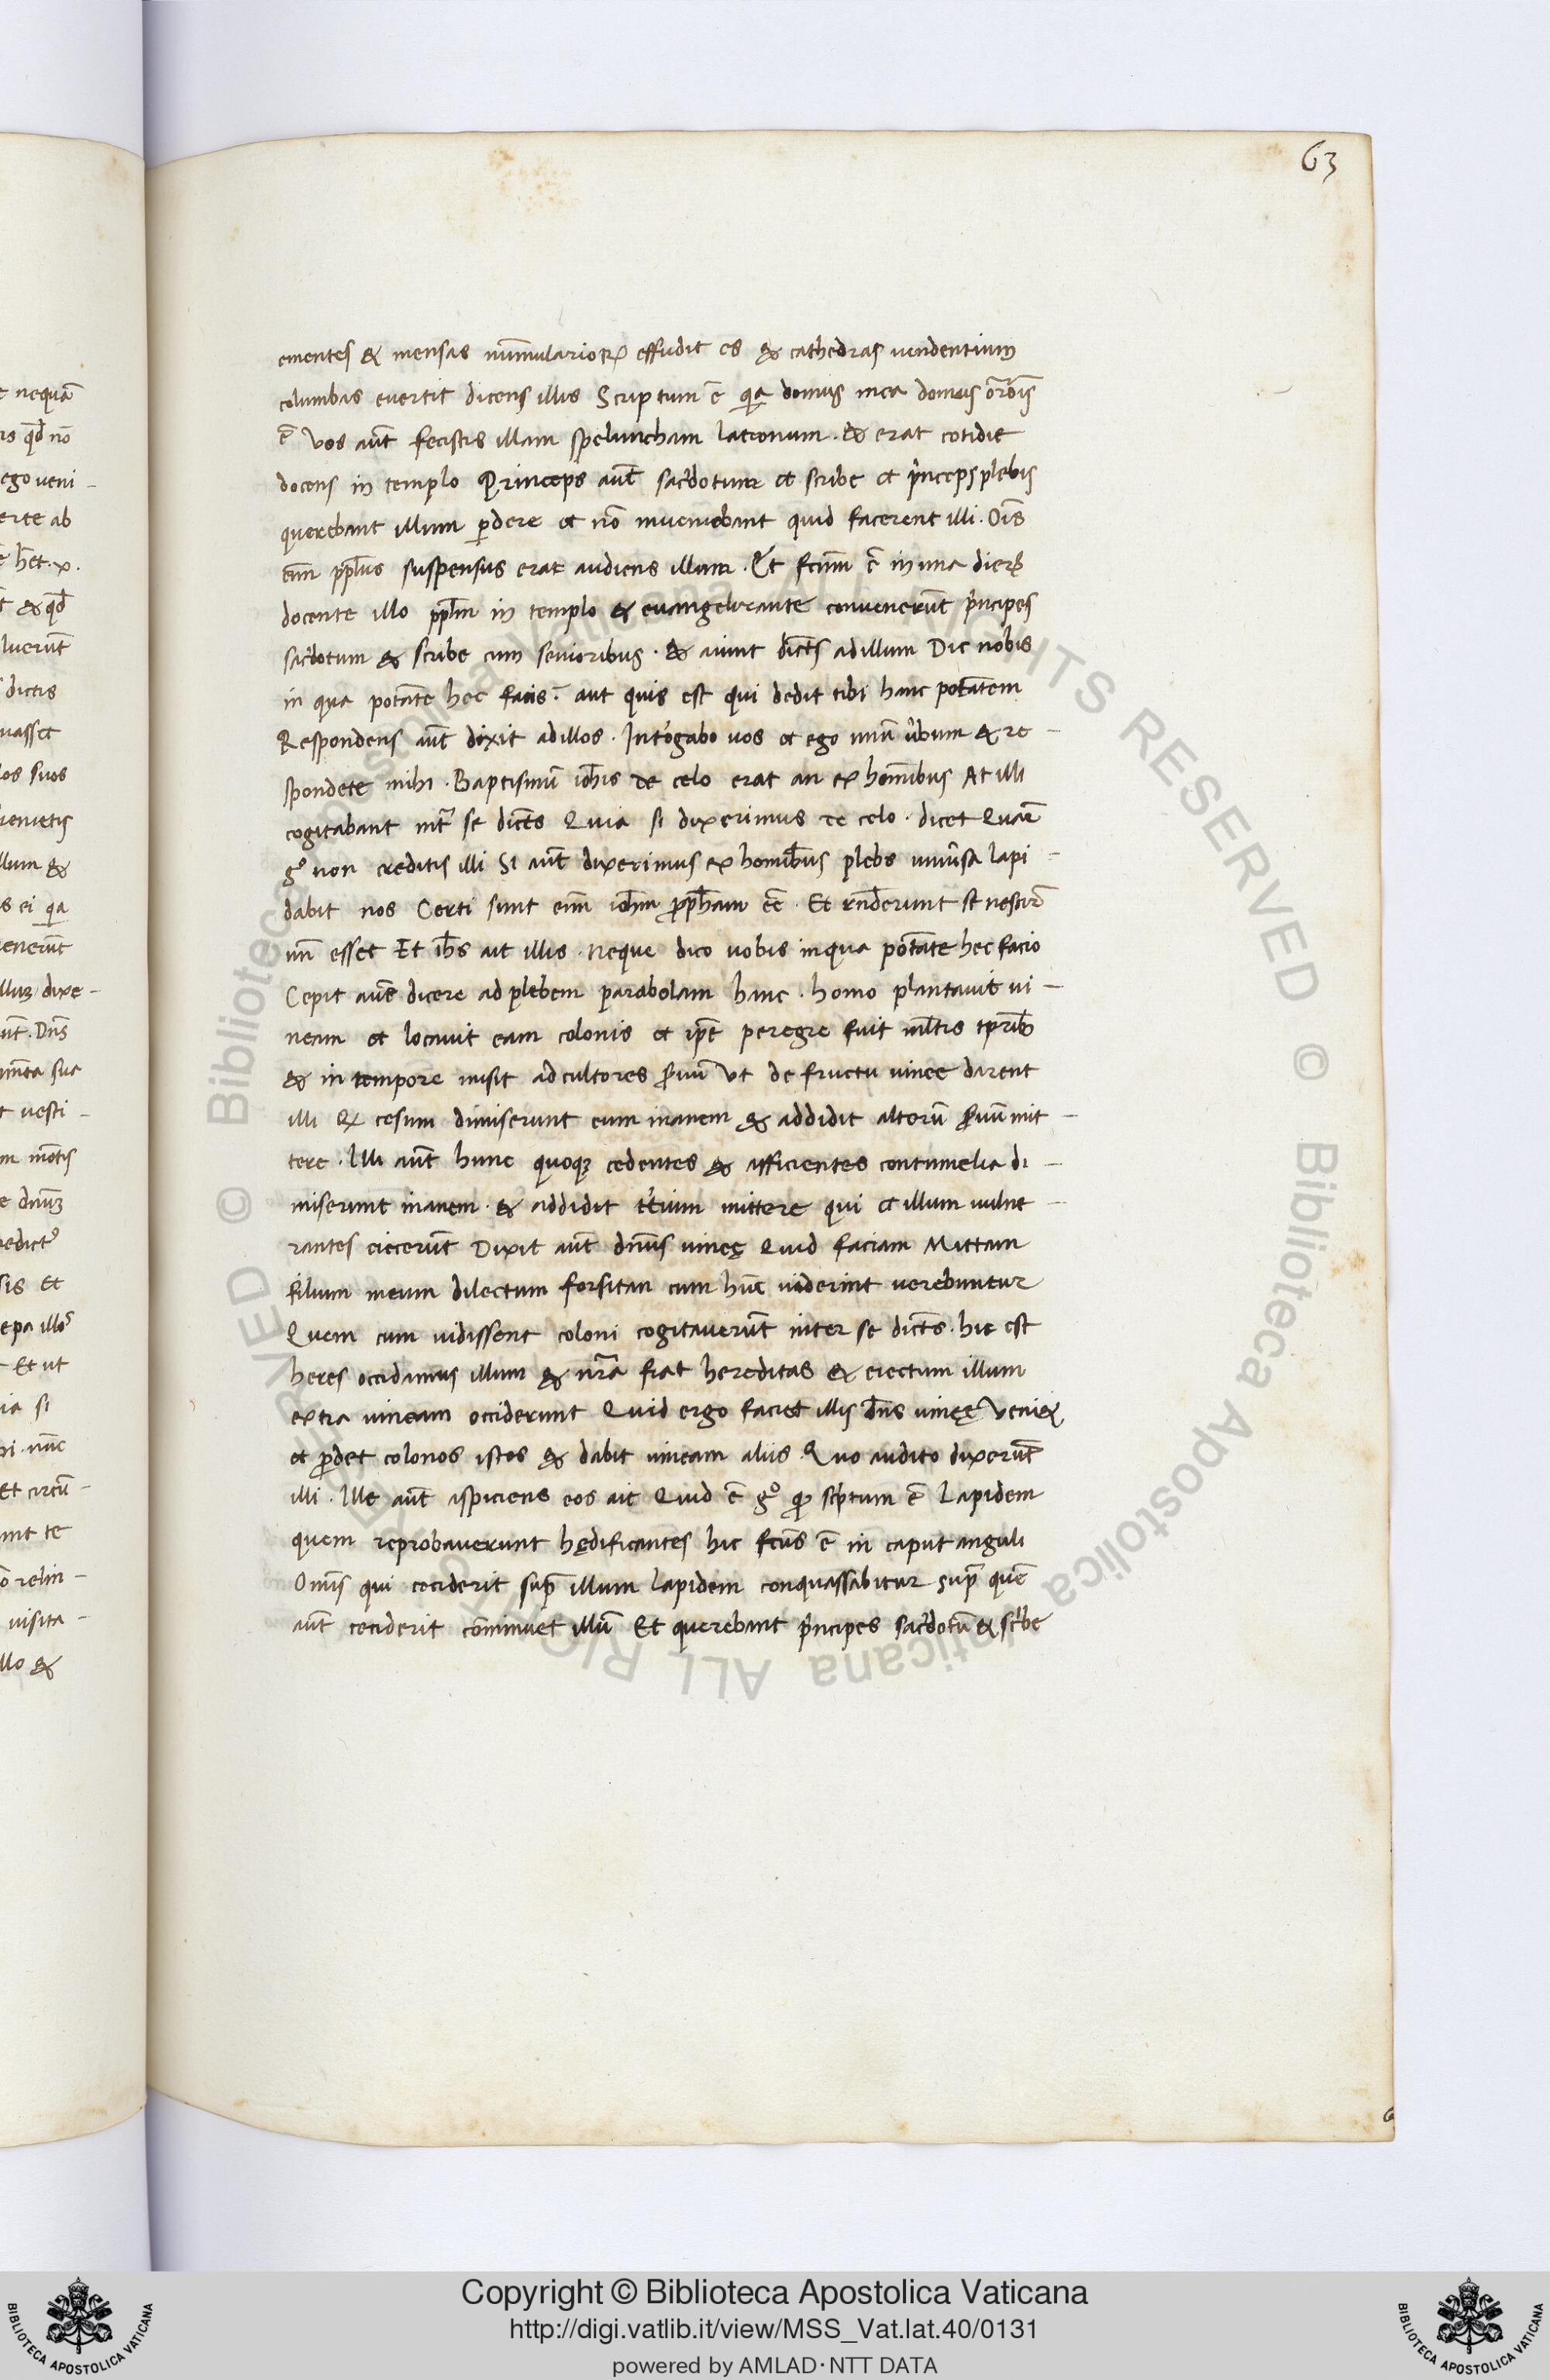 63
ementes & mensas nūmularioꝝ effudit es & cathedras uendentium
columbas euertit dicens illis Scriptum ē qꝛa domus mea domus or̄onis
ē Vos aūt fecistis illam speluncham latronum. & erat cotidie
docens in templo Princeps aūt sacdotum et scribe et princeps plebis
querebant illum ꝑdere et nō inueniebant quid facerent illi. Oīs
eīm pplus suspensus erat audiens illum. Et fcīm ē in una dierꝫ
docente illo pplm in templo & euangelizante conuenerūt principes
sacdotum & scribe cum senioribus. & aiunt dictēs ad illum Dic nobis
in qua potāte hec facis? aut quis est qui dedit tibi hanc potātem
Respondens aūt dixit ad illos. Introgabo uos et ego unū ubum & re-
spondete mihi. Baptismū ioh̄is de celo erat an ex hoīnibus At illi
cogitabant intr̄ se dicēs Quia si dixerimus de celo. dicet Quare
gͦ non creditis illi Si aūt dixerimus ex homībus plebs uniusa lapi-
dabit nos Certi sunt eīm ioh̄m ꝓph̄am eē. Et rn̄derunt se nescire
un̄ esset Et ih̄s ait illis. neque dico uobis in qua potāte hec facio
Cepit aūt dicere ad plebem parabolam hanc. homo plantauit ui-
neam et locauit eam colonis et ip̄e peregre fuit ml̄tis tp̄rib
& in tempore misit ad cultores ẜuū Vt de fructu uinee darent
illi Qͥ cesum dimiserunt eum inanem & addidit alterū ẜuū mit-
tere. Illi aūt hunc quoqꝫ cedentes & afficientes contumelia di-
miserunt inanem. & addidit tertium mittere qui et illum uulne-
rantes eiecerūt Dixit aūt dn̄us uineę Quid faciam Mittam
filium meum dilectum forsitan cum hūc uiderint uerebuntur
Quem cum uidissent coloni cogitauerūt inter se dicēs. hic est
heres occidamus illum & nr̄a fiat hereditas & eiectum illum
extra uineam occiderunt Quid ergo faciet illis dn̄s uineę Veniet
et ꝑdet colonos istos & dabit uineam aliis Quo audito dixerūt
illi. Ille aūt aspiciens eos ait Quid ē gͦ qͩ sc̄ptum ē Lapidem
quem reprobauerunt hędificantes hic fcūs ē in caput anguli
Omīs qui ceciderit supͣ illum lapidem conquassabitur supͣ quē
aūt ceciderit cōminuet illū Et querebant principes sacdotū & scribe
Copyright © Biblioteca Apostolica Vaticana
http://digi.vatlib.it/view/MSS_Vat.lat.40/0131
powered by AMLAD·NTT DATA